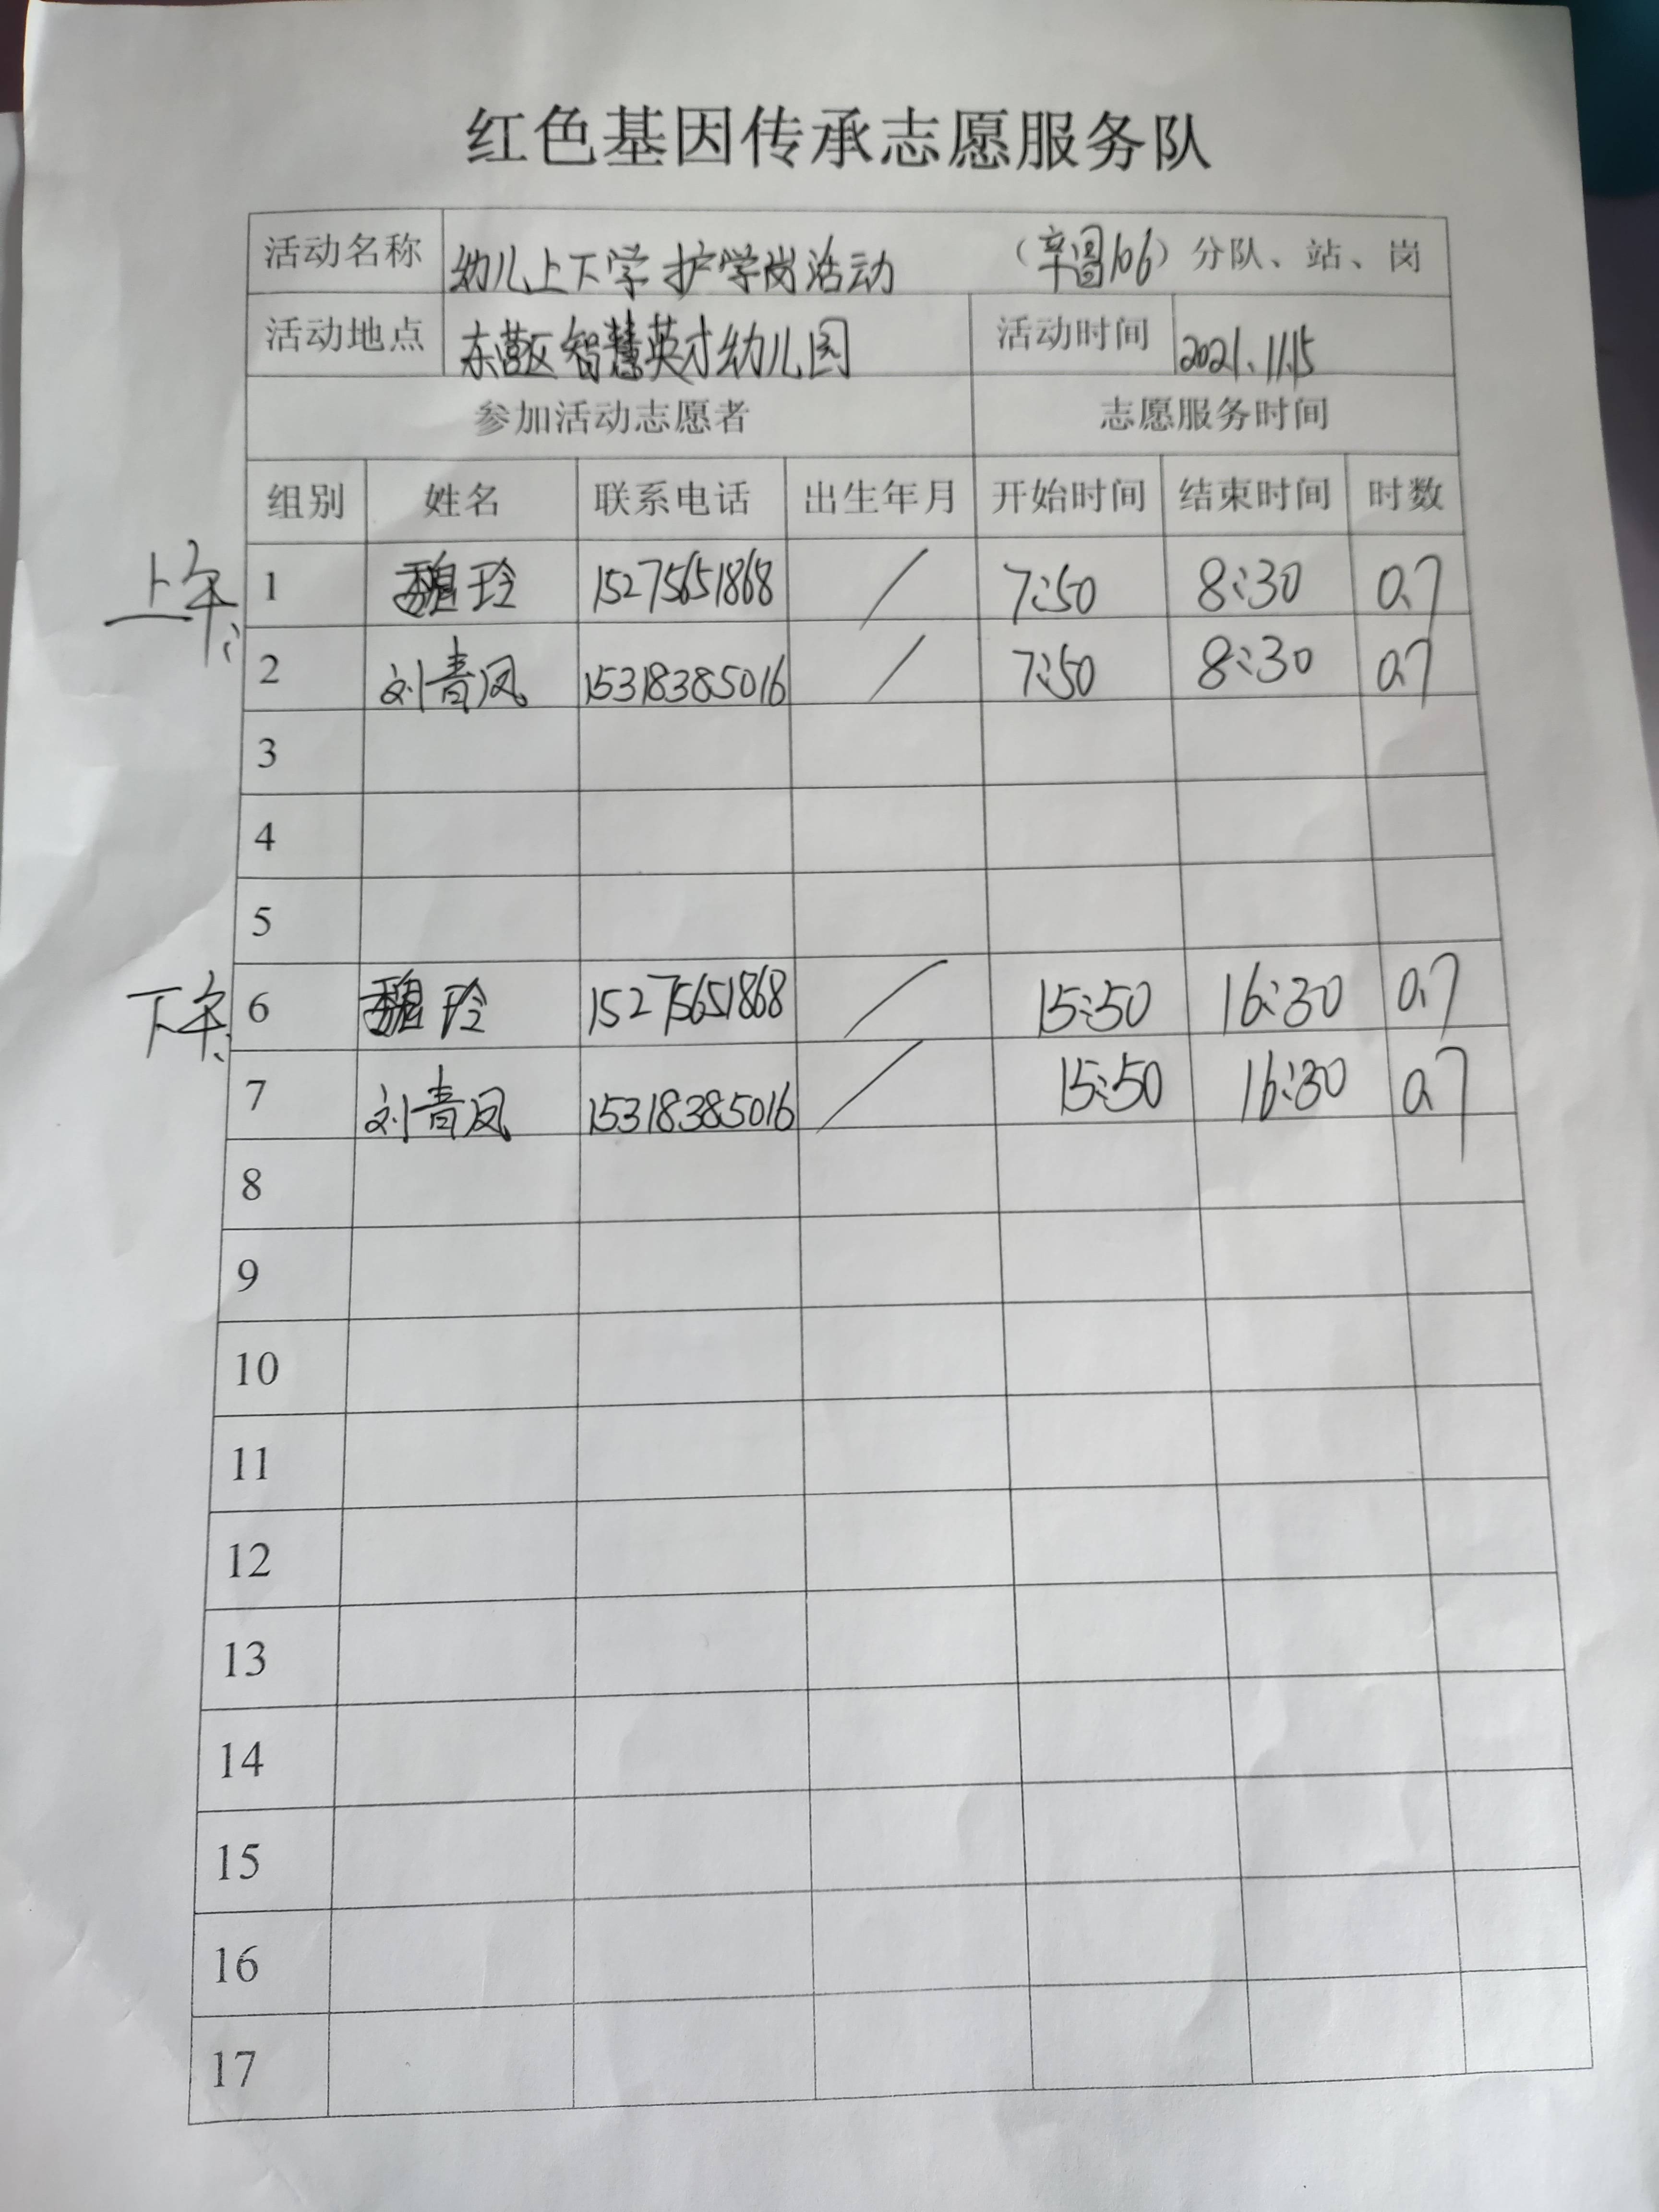 红色基因传承志愿服务队
活动名称 幼儿上下学护学岗活动 （辛图106）分队、站、岗
活动地点 东营区智慧英才幼儿园 活动时间 2021.11.15
参加活动志愿者 志愿服务时间
组别 姓名 联系电话 出生年月 开始时间 结束时间 时数
上午： 1 魏玲 15275651868 / 7:50 8:30 0.7
2 刘青凤 15318385016 / 7:50 8:30 0.7
3
4
5
下午： 6 魏玲 15275651868 / 15:50 16:30 0.7
7 刘青凤 15318385016 / 15:50 16:30 0.7
8
9
10
11
12
13
14
15
16
17